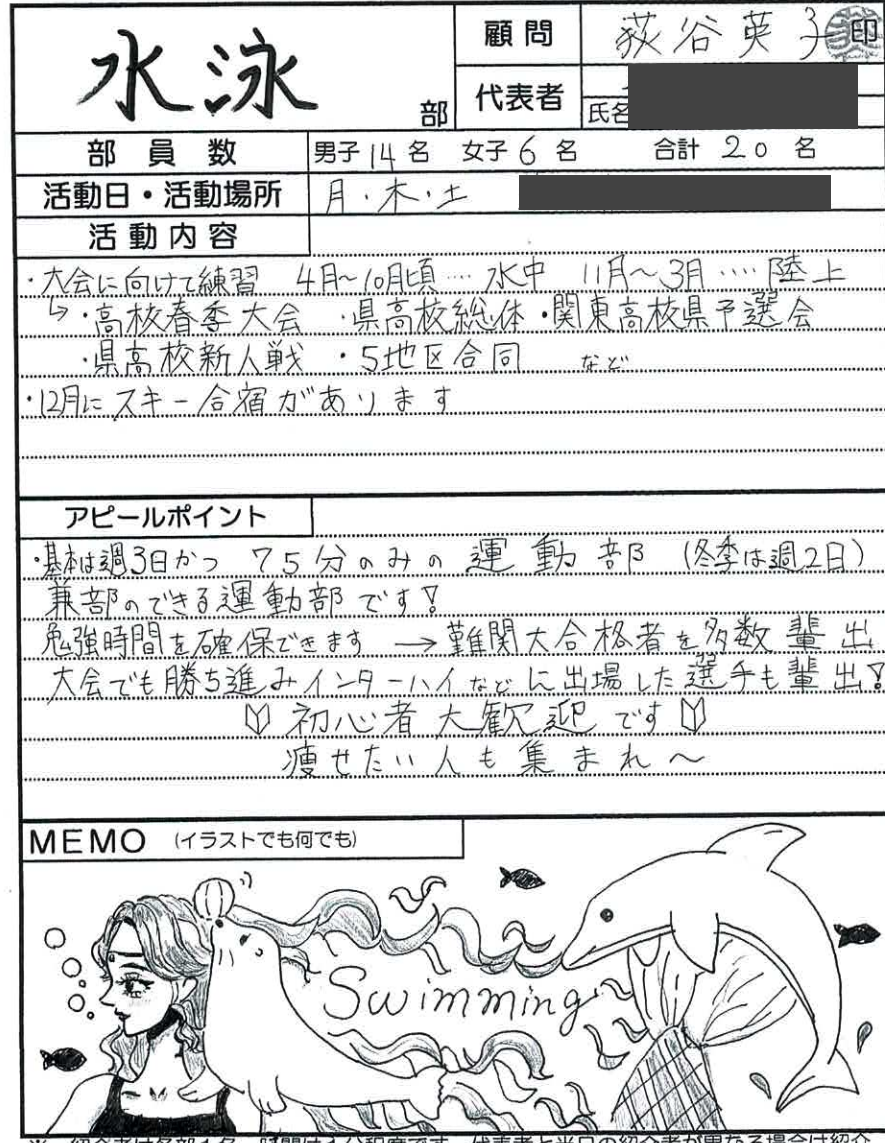 水泳 部
顧問 荻谷英子 印
代表者
氏名
部員数 男子14名 女子6名 合計20名
活動日・活動場所 月・木・土
活動内容
・大会に向けて練習 4月~10月頃…水中 11月~3月….陸上
↳・高校春季大会 ・県高校総体・関東高校県予選会
・県高校新人戦 ・5地区合同 など
・12月にスキー合宿があります
アピールポイント
・基本は週3日かつ 75分のみの運動部 (冬季は週2日)
兼部のできる運動部です!
勉強時間を確保できます → 難関大合格者を多数輩出
大会でも勝ち進みインターハイなどに出場した選手も輩出!
初心者大歓迎です
痩せたい人も集まれ~
MEMO (イラストでも何でも)
Swimming